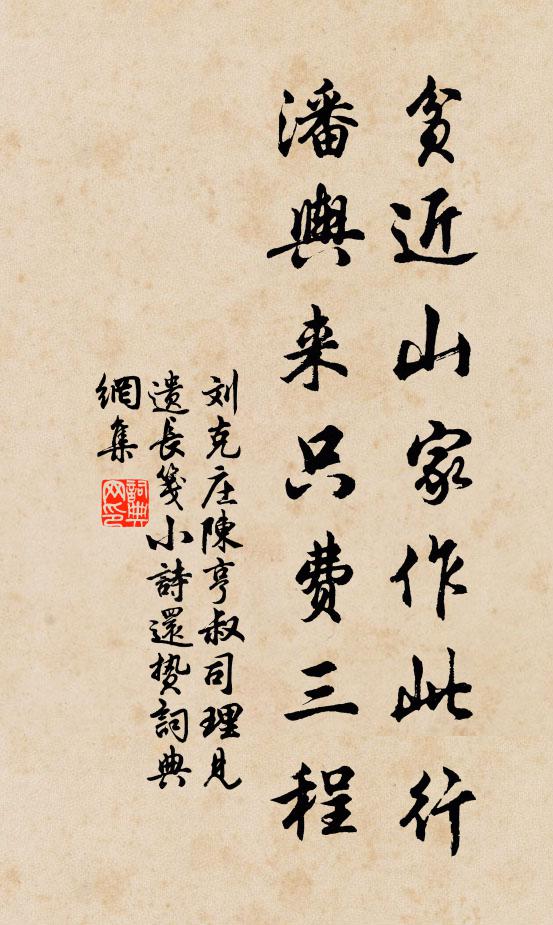 貧近山家作此行
潘輿来只费三程
刘克庄陳亨叔司理見
遺長箋小詩還贄詞典
網集
詞典網印